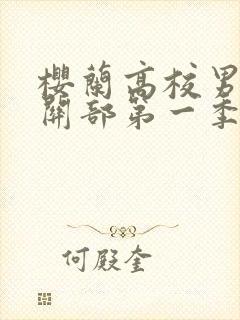 櫻蘭高校男
關部第一季
何殿奎